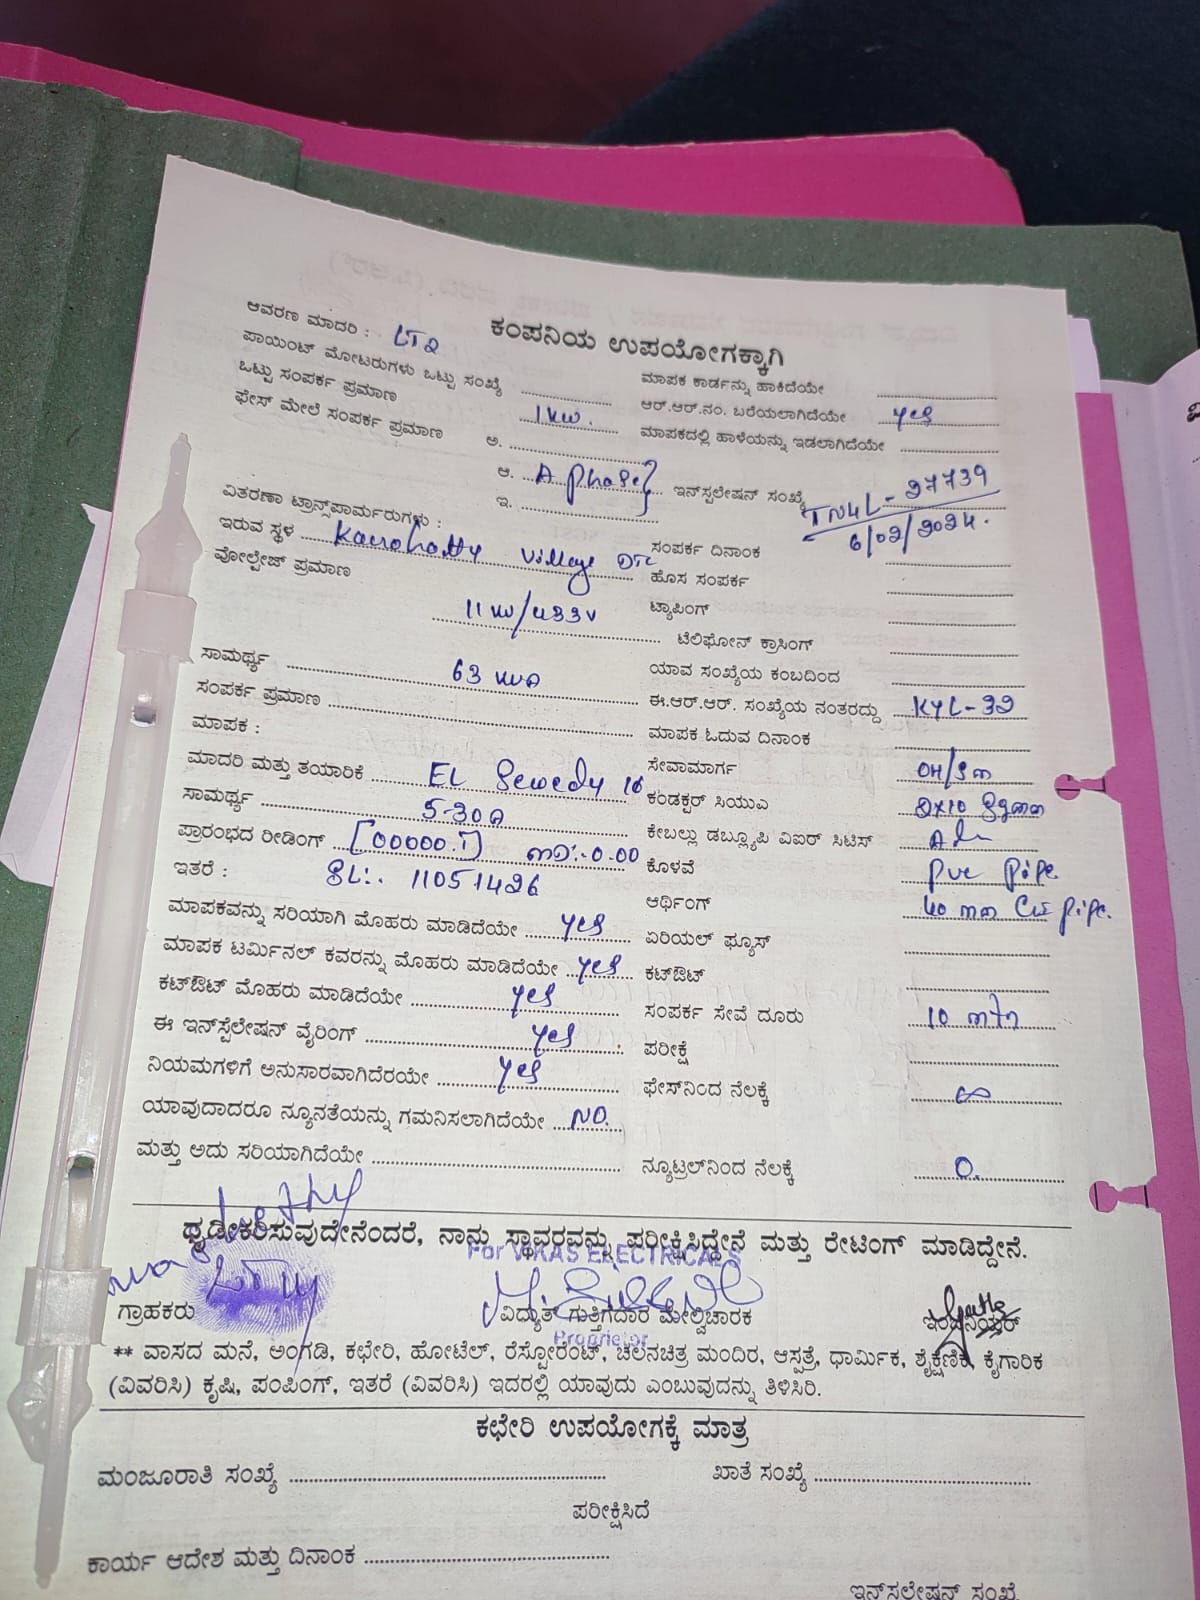 ಕಂಪನಿಯ ಉಪಯೋಗಕ್ಕಾಗಿ
ಆವರಣ ಮಾದರಿ : LT2
ಪಾಯಿಂಟ್ ಮೋಟರುಗಳು ಒಟ್ಟು ಸಂಖ್ಯೆ
ಒಟ್ಟು ಸಂಪರ್ಕ ಪ್ರಮಾಣ 1kw.
ಫೇಸ್ ಮೇಲೆ ಸಂಪರ್ಕ ಪ್ರಮಾಣ ಅ.
ಆ. A phase
ಇ.
ವಿತರಣಾ ಟ್ರಾನ್ಸ್‌ಪಾರ್ಮರುಗಳು :
ಇರುವ ಸ್ಥಳ Village
ವೋಲ್ಟೇಜ್ ಪ್ರಮಾಣ 11 kv/433v
ಸಾಮರ್ಥ್ಯ 63 kva
ಸಂಪರ್ಕ ಪ್ರಮಾಣ
ಮಾಪಕ :
ಮಾದರಿ ಮತ್ತು ತಯಾರಿಕೆ EL Sewedy
ಸಾಮರ್ಥ್ಯ 5-30A
ಪ್ರಾರಂಭದ ರೀಡಿಂಗ್ [00000.1] MD:-0.00
ಇತರೆ : SL:. 11051426
ಮಾಪಕವನ್ನು ಸರಿಯಾಗಿ ಮೊಹರು ಮಾಡಿದೆಯೇ yes
ಮಾಪಕ ಟರ್ಮಿನಲ್ ಕವರನ್ನು ಮೊಹರು ಮಾಡಿದೆಯೇ yes
ಕಟ್‌ಔಟ್ ಮೊಹರು ಮಾಡಿದೆಯೇ yes
ಈ ಇನ್‌ಸ್ಪಲೇಷನ್ ವೈರಿಂಗ್ yes
ನಿಯಮಗಳಿಗೆ ಅನುಸಾರವಾಗಿದೆರಯೇ yes
ಯಾವುದಾದರೂ ನ್ಯೂನತೆಯನ್ನು ಗಮನಿಸಲಾಗಿದೆಯೇ NO.
ಮತ್ತು ಅದು ಸರಿಯಾಗಿದೆಯೇ
ಮಾಪಕ ಕಾರ್ಡನ್ನು ಹಾಕಿದೆಯೇ
ಆರ್.ಆರ್.ನಂ. ಬರೆಯಲಾಗಿದೆಯೇ yes
ಮಾಪಕದಲ್ಲಿ ಹಾಳೆಯನ್ನು ಇಡಲಾಗಿದೆಯೇ
ಇನ್‌ಸ್ಪಲೇಷನ್ ಸಂಖ್ಯೆ TN4L-27739
6/02/2024.
ಸಂಪರ್ಕ ದಿನಾಂಕ
ಹೊಸ ಸಂಪರ್ಕ
ಟ್ಯಾಪಿಂಗ್
ಟೆಲಿಫೋನ್ ಕ್ರಾಸಿಂಗ್
ಯಾವ ಸಂಖ್ಯೆಯ ಕಂಬದಿಂದ
ಈ.ಆರ್.ಆರ್. ಸಂಖ್ಯೆಯ ನಂತರದ್ದು KYL-32
ಮಾಪಕ ಓದುವ ದಿನಾಂಕ
ಸೇವಾಮಾರ್ಗ
ಕಂಡಕ್ಟರ್ ಸಿಯುಎ 2x10 Sqmm
ಕೇಬಲ್ಲು ಡಬ್ಲ್ಯೂಪಿ ವಿಐರ್ ಸಿಟಿಸ್
ಕೊಳವೆ pvc pipe
ಆರ್ಥಿಂಗ್ 40 mm pipe.
ಏರಿಯಲ್ ಫ್ಯೂಸ್
ಕಟ್‌ಔಟ್
ಸಂಪರ್ಕ ಸೇವೆ ದೂರು 10 mtr
ಪರೀಕ್ಷೆ
ಫೇಸ್‌ನಿಂದ ನೆಲಕ್ಕೆ ∞
ನ್ಯೂಟ್ರಲ್‌ನಿಂದ ನೆಲಕ್ಕೆ 0.
ಧೃಡೀಕರಿಸುವುದೇನೆಂದರೆ, ನಾನು ಸ್ಥಾವರವನ್ನು ಪರೀಕ್ಷಿಸಿದ್ದೇನೆ ಮತ್ತು ರೇಟಿಂಗ್ ಮಾಡಿದ್ದೇನೆ.
For VIKAS ELECTRICALS
ಗ್ರಾಹಕರು ವಿದ್ಯುತ್ ಗುತ್ತಿಗೆದಾರ ಮೇಲ್ವಿಚಾರಕ ಇಂಜಿನಿಯರ್
Proprietor
** ವಾಸದ ಮನೆ, ಅಂಗಡಿ, ಕಛೇರಿ, ಹೋಟೆಲ್, ರೆಸ್ಟೋರೆಂಟ್, ಚಲನಚಿತ್ರ ಮಂದಿರ, ಆಸ್ಪತ್ರೆ, ಧಾರ್ಮಿಕ, ಶೈಕ್ಷಣಿಕ, ಕೈಗಾರಿಕೆ
(ವಿವರಿಸಿ) ಕೃಷಿ, ಪಂಪಿಂಗ್, ಇತರೆ (ವಿವರಿಸಿ) ಇದರಲ್ಲಿ ಯಾವುದು ಎಂಬುವುದನ್ನು ತಿಳಿಸಿರಿ.
ಕಛೇರಿ ಉಪಯೋಗಕ್ಕೆ ಮಾತ್ರ
ಮಂಜೂರಾತಿ ಸಂಖ್ಯೆ ಖಾತೆ ಸಂಖ್ಯೆ
ಪರೀಕ್ಷಿಸಿದೆ
ಕಾರ್ಯ ಆದೇಶ ಮತ್ತು ದಿನಾಂಕ